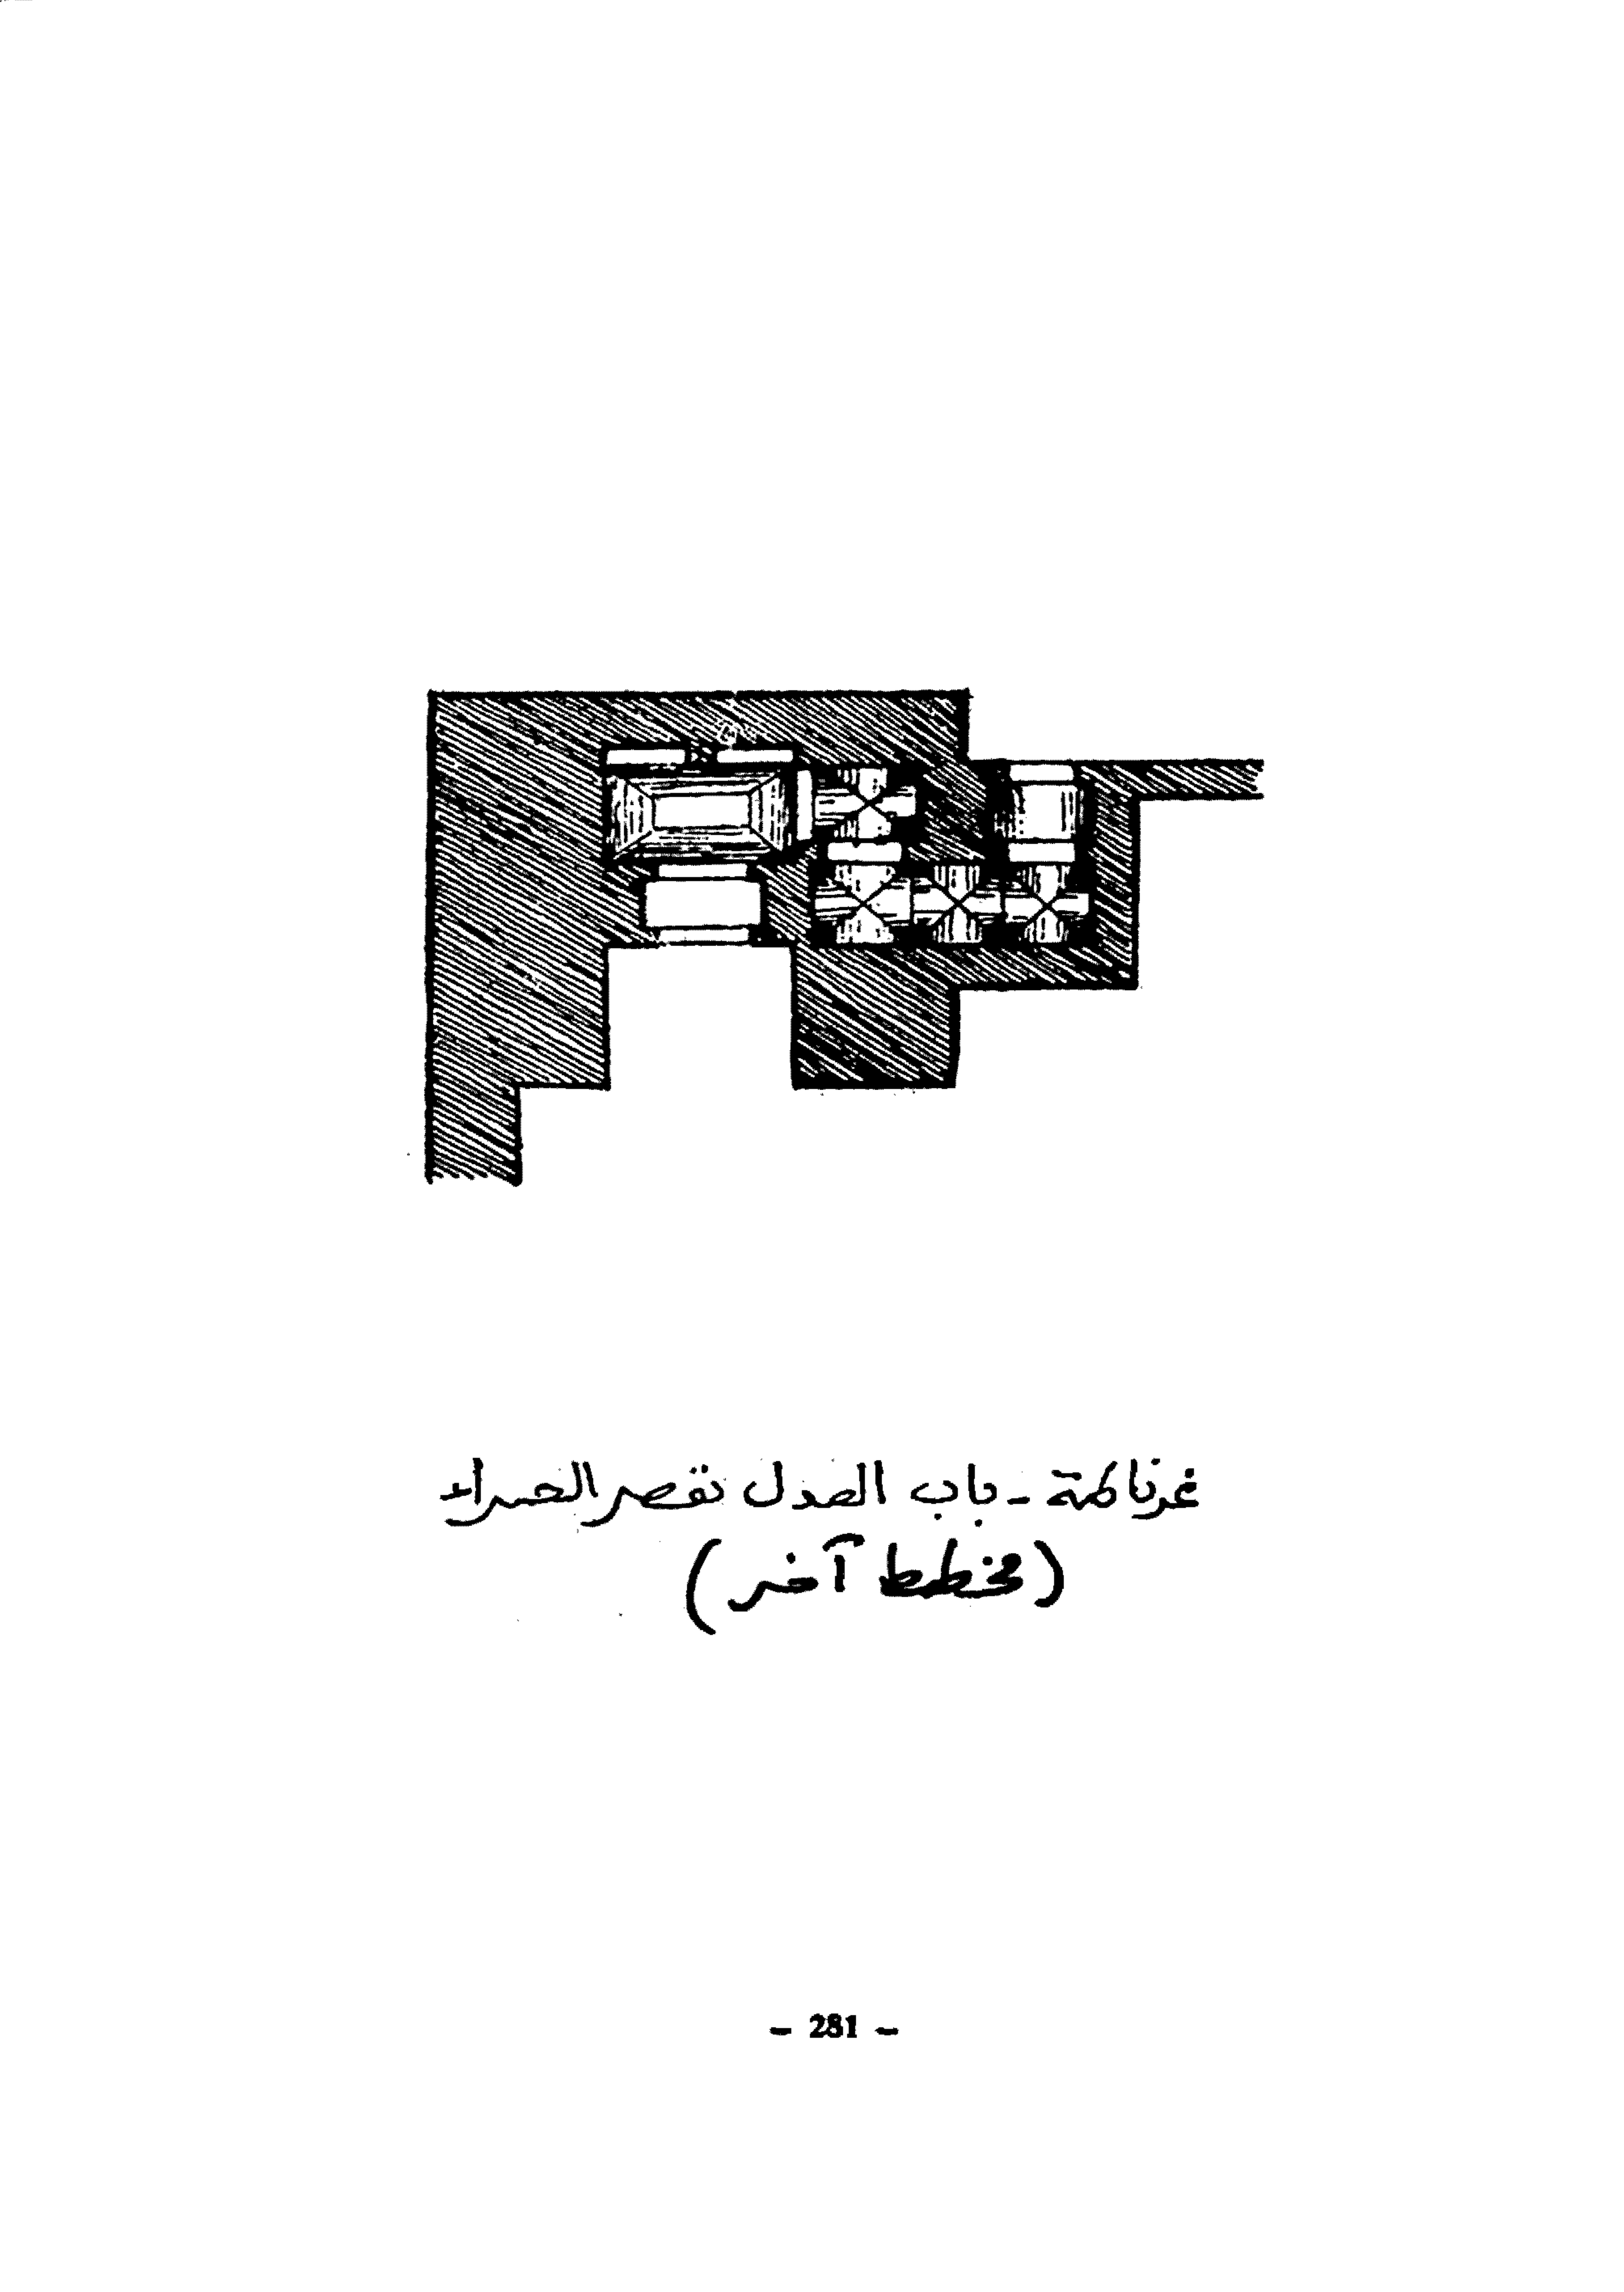 غرناطة - باب العدل بقصر الحمراء
(مخطط آخر)
- 281 -